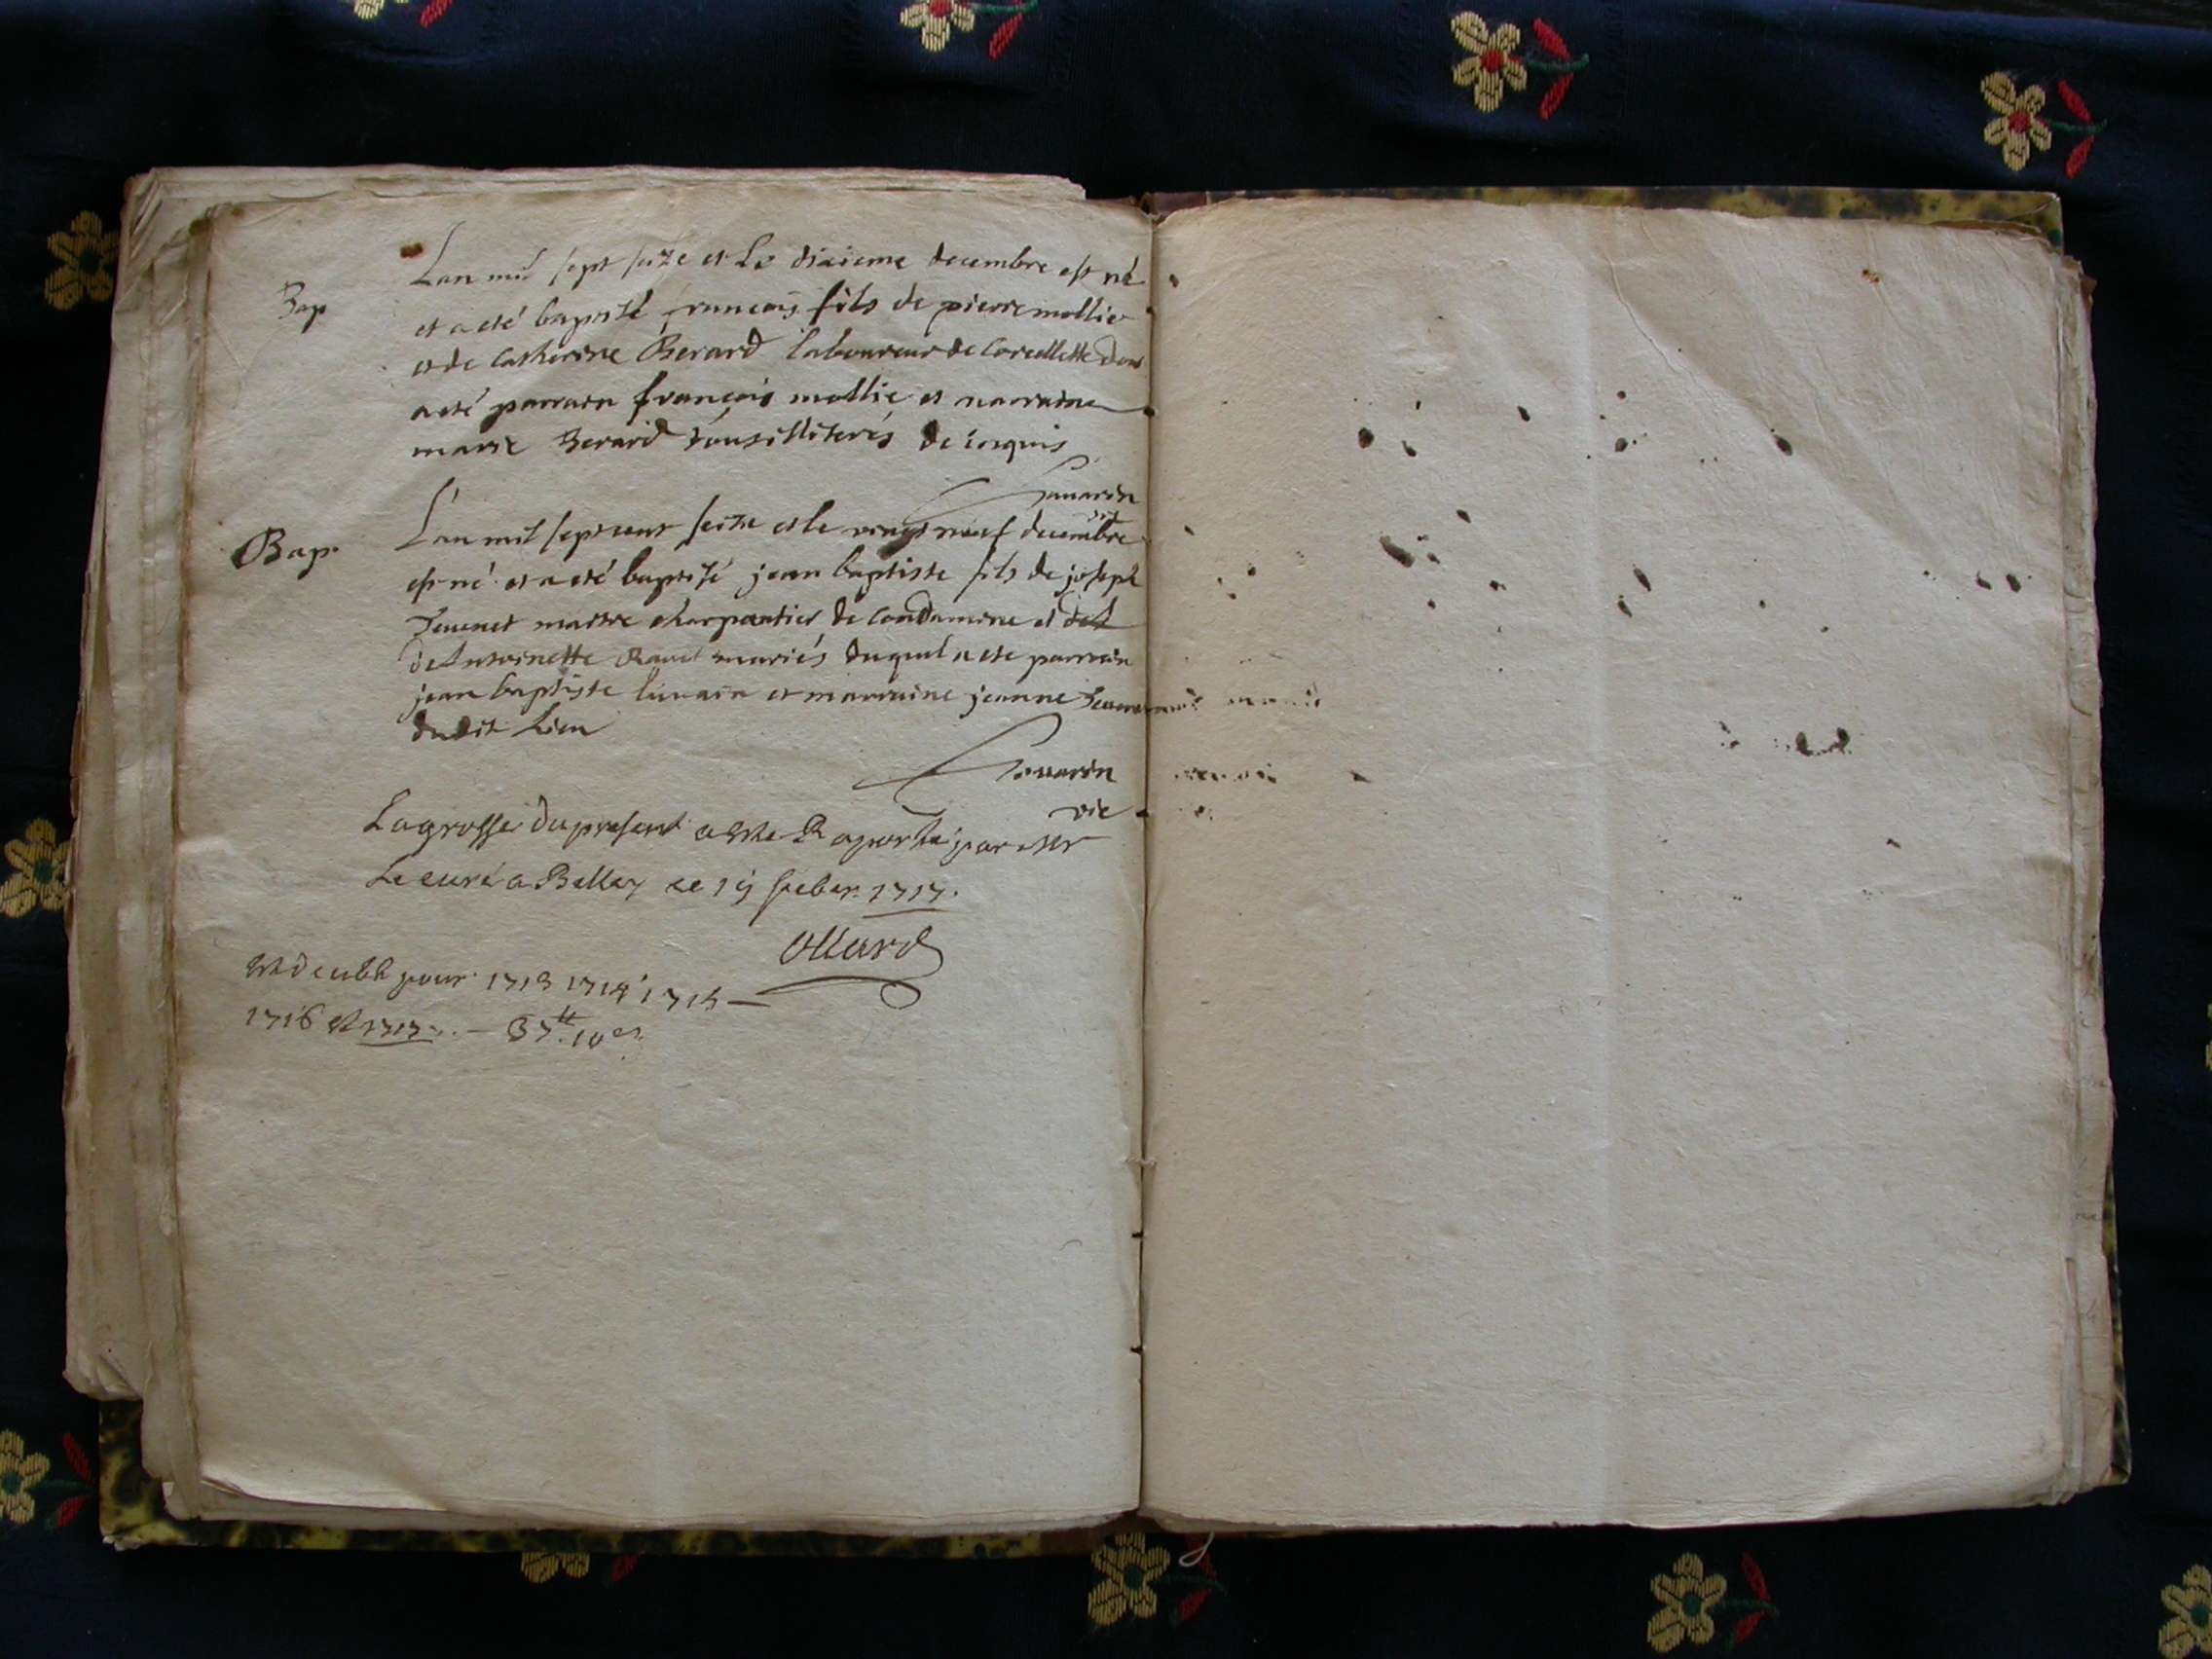 Bap
Lan mil sept seize et le dixieme decembre est né
et a eté baptisé françois fils de pierre mollie
et de Catherine Berard laboureur de Corcellette dont
a eté parrain françois mollie et marraine
marie Berard tous illiterés de inquis
Bap.
L'an mil sept cent seize et le vingt neuf decembre
est né et a eté baptisé jean baptiste fils de joseph
maitre charpentier de Condamine et
de Antoinette mariés duquel a ete parrain
jean baptiste et marraine jeanne
dudit lieu
vic
La grosse du present a este Raporte par Mr
Le curé a Belley ce 19 feber. 1717.
Ollard
pour 1713 1714 1715 —
1716 et 1717. — 37tt. 10